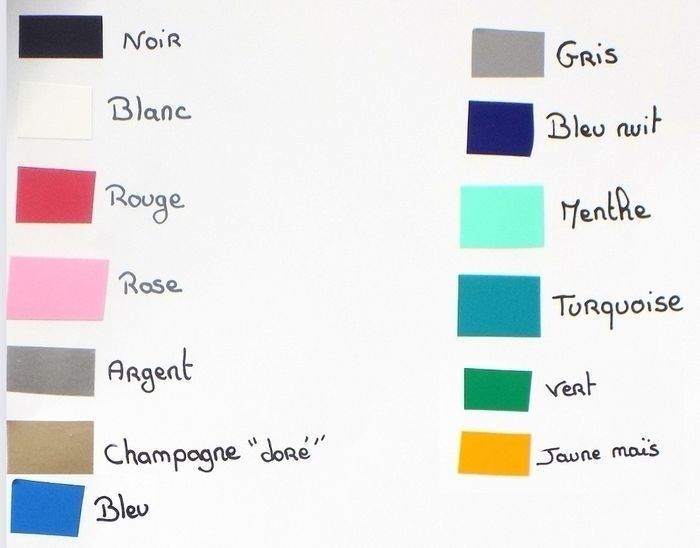 Noir
Blanc
Rouge
Rose
Argent
Champagne "doré"
Bleu
Gris
Bleu nuit
Menthe
Turquoise
Vert
Jaune maïs